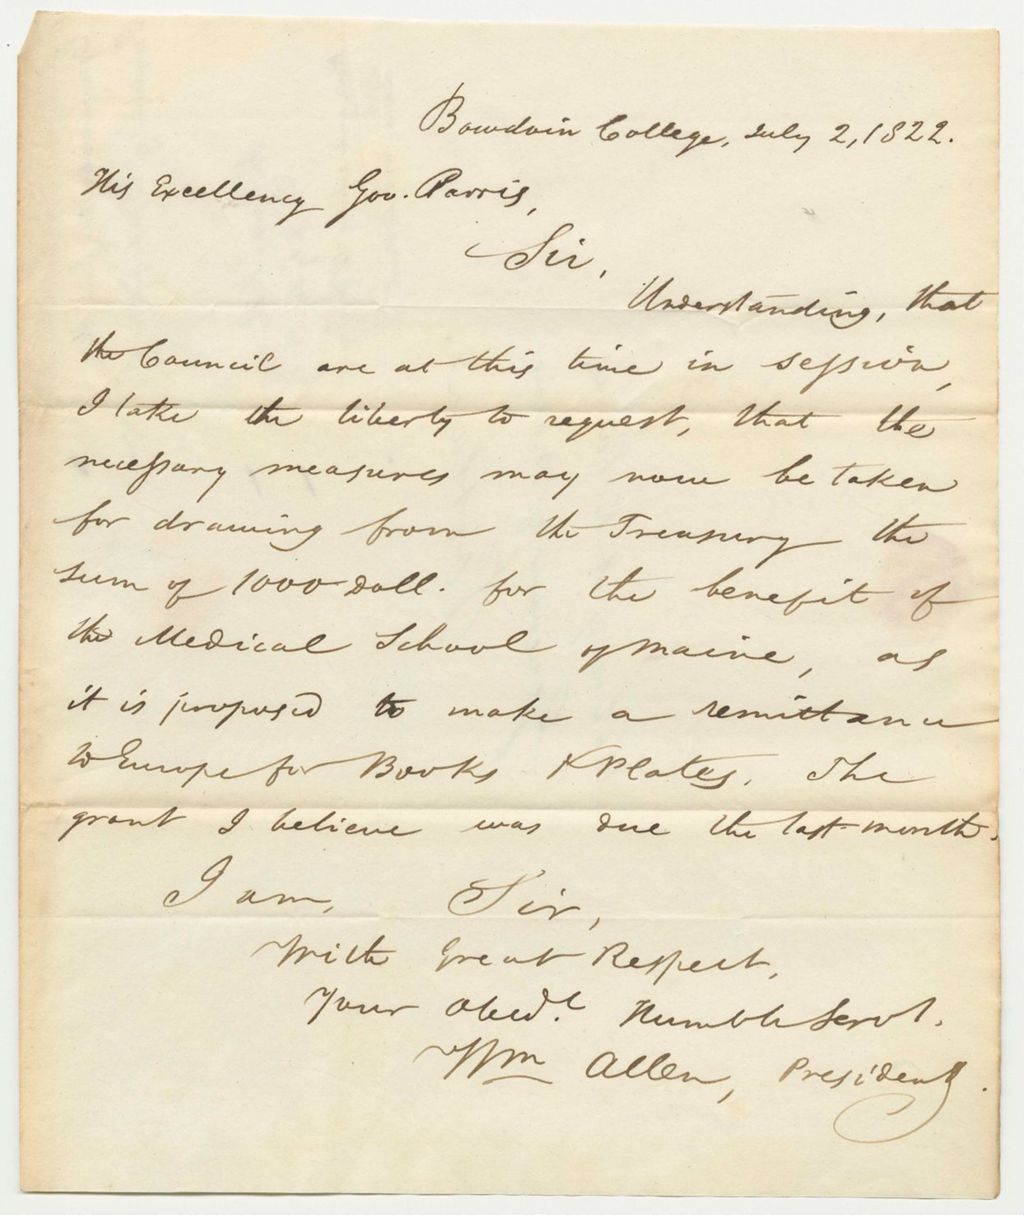 Bowdoin College, July 2, 1822.
His Excellency Gov. Parris,
Sir,
Understanding, that
the Council are at this time in session,
I take the liberty to request, that the
necessary measures may now be taken
for drawing from the Treasury the
sum of 1000 doll. for the benefit of
the Medical School of Maine, as
it is proposed to make a remittance
to Europe for Books & Plates. The
grant I believe was due the last month.
I am, Sir,
With Great Respect,
Your Obedt. Humble Servt.
Wm Allen, President.